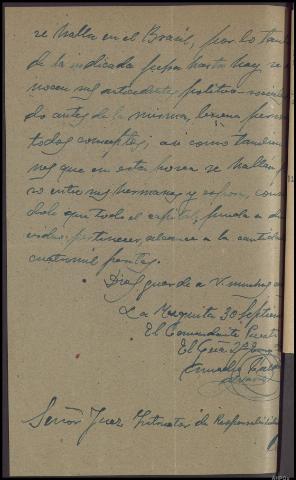 se halla en el Brasil, por lo tan
de la indicada fecha hasta hoy se
nocen sus antecedentes politico-social
do antes de la misma, buena perso
todos conceptos, asi como tambien
nes que en esta hora se hallan
ro entre sus hermanos y esposa, con
dole que todo el capital pueda a di
vidirse pertenecer, alcance a la cantida
cuatro mil pesetas.
Dios guarde a V. muchos a
La Mezquita 30 Septiem
El Comandante Puest
El Guía 2º
Señor Juez Instructor de Responsabilida